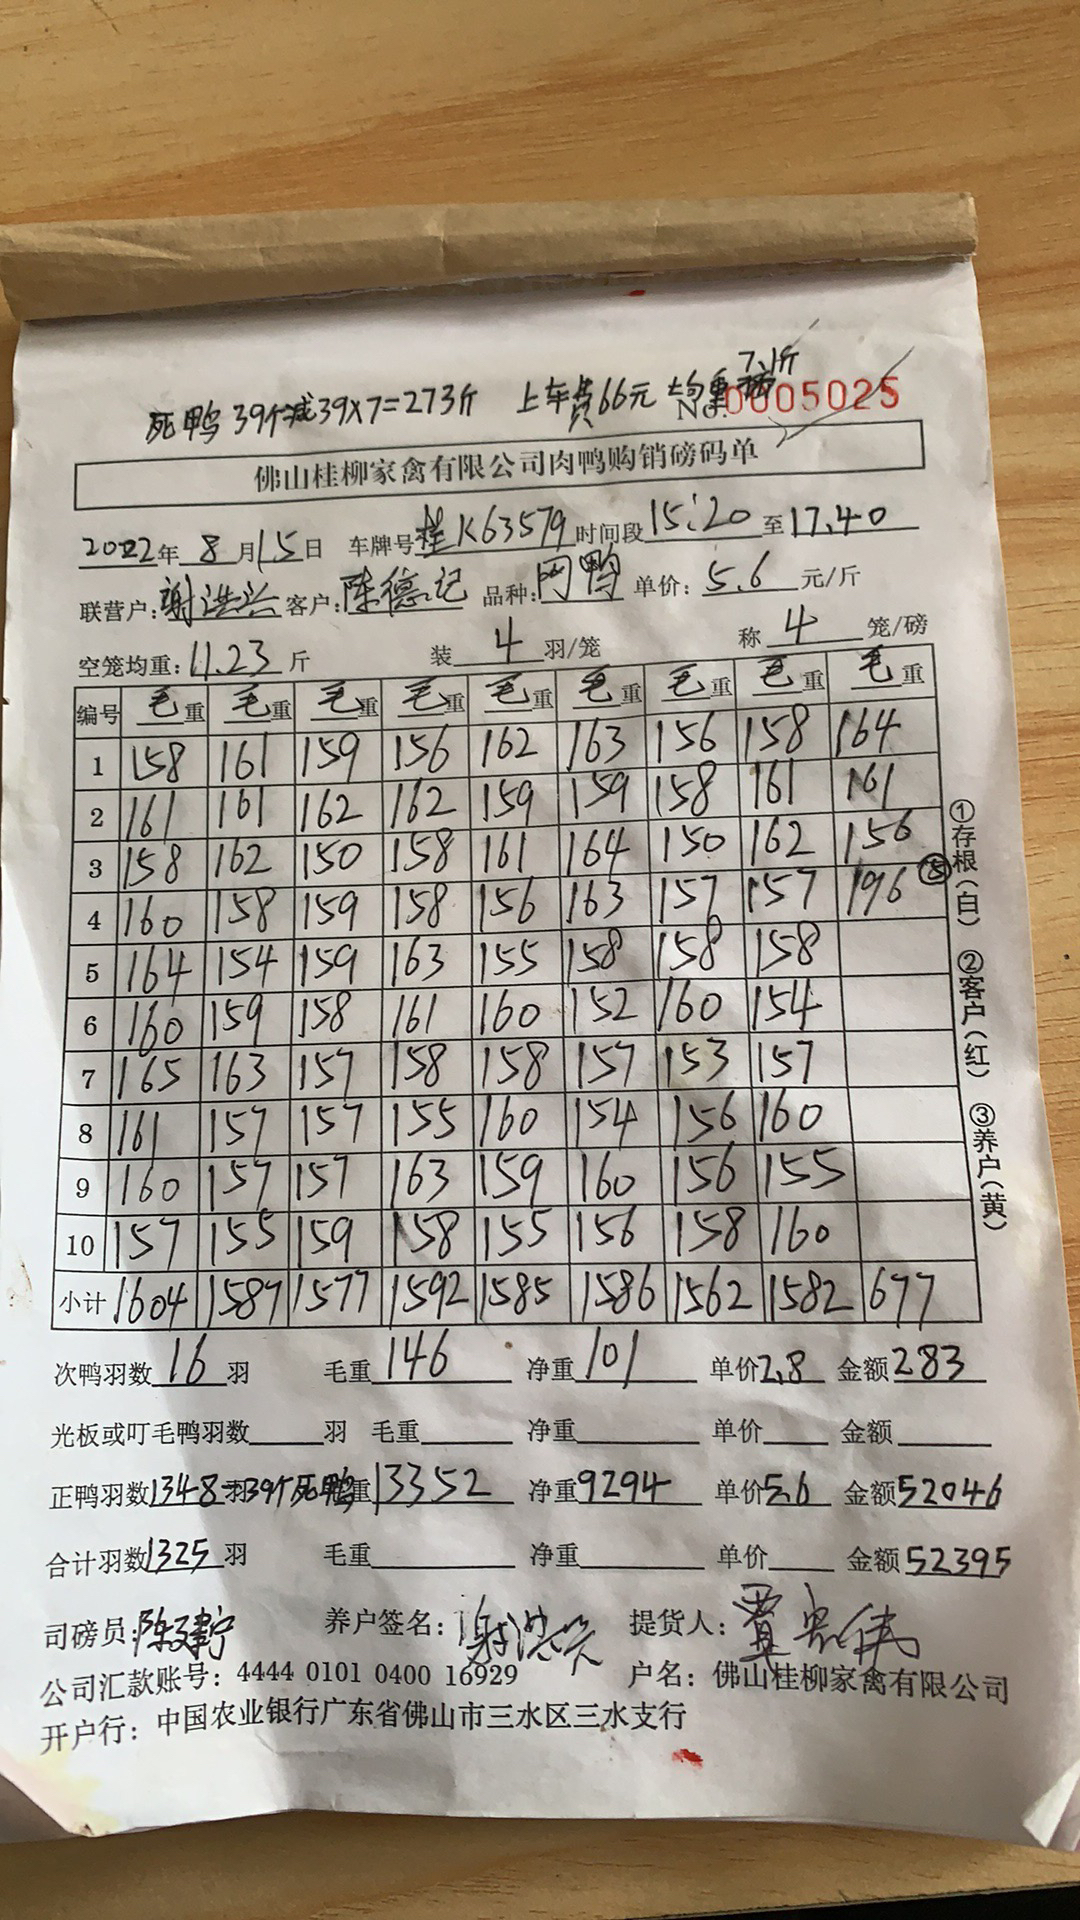 7.1斤
死鸭39个减39X7=273斤 上车费66元 均重
No.0005025
佛山桂柳家禽有限公司肉鸭购销磅码单
2022年 8月15日 车牌号桂K63579 时间段15:20至17.40
联营户:谢浩兴 客户:陈德记 品种: 单价:5.6元/斤
空笼均重:11.23斤 装4羽/笼 称4笼/磅
编号 毛重 毛重 毛重 毛重 毛重 毛重 毛重 毛重 毛重
1 158 161 159 156 162 163 156 158 164
2 161 161 162 162 159 159 158 161 161
3 158 162 150 158 161 164 150 162 156
4 160 158 159 158 156 163 157 157 196 ⑤
5 164 154 159 163 155 158 158 158
6 160 159 158 161 160 152 160 154
7 165 163 157 158 158 157 153 157
8 161 157 157 155 160 154 156 160
9 160 157 157 163 159 160 156 155
10 157 155 159 158 155 156 158 160
小计 1604 1587 1577 1592 1585 1586 1562 1582 677
次鸭羽数16羽 毛重146 净重101 单价2.8 金额283
光板或叮毛鸭羽数 羽 毛重 净重 单价 金额
正鸭羽数1348羽 39个死鸭 重13352 净重9294 单价5.6 金额52046
合计羽数1325羽 毛重 净重 单价 金额52395
司磅员:陈建宁 养户签名:谢浩兴 提货人:
公司汇款账号:4444 0101 0400 16929 户名:佛山桂柳家禽有限公司
开户行:中国农业银行广东省佛山市三水区三水支行
①存根(白) ②客户(红) ③养户(黄)